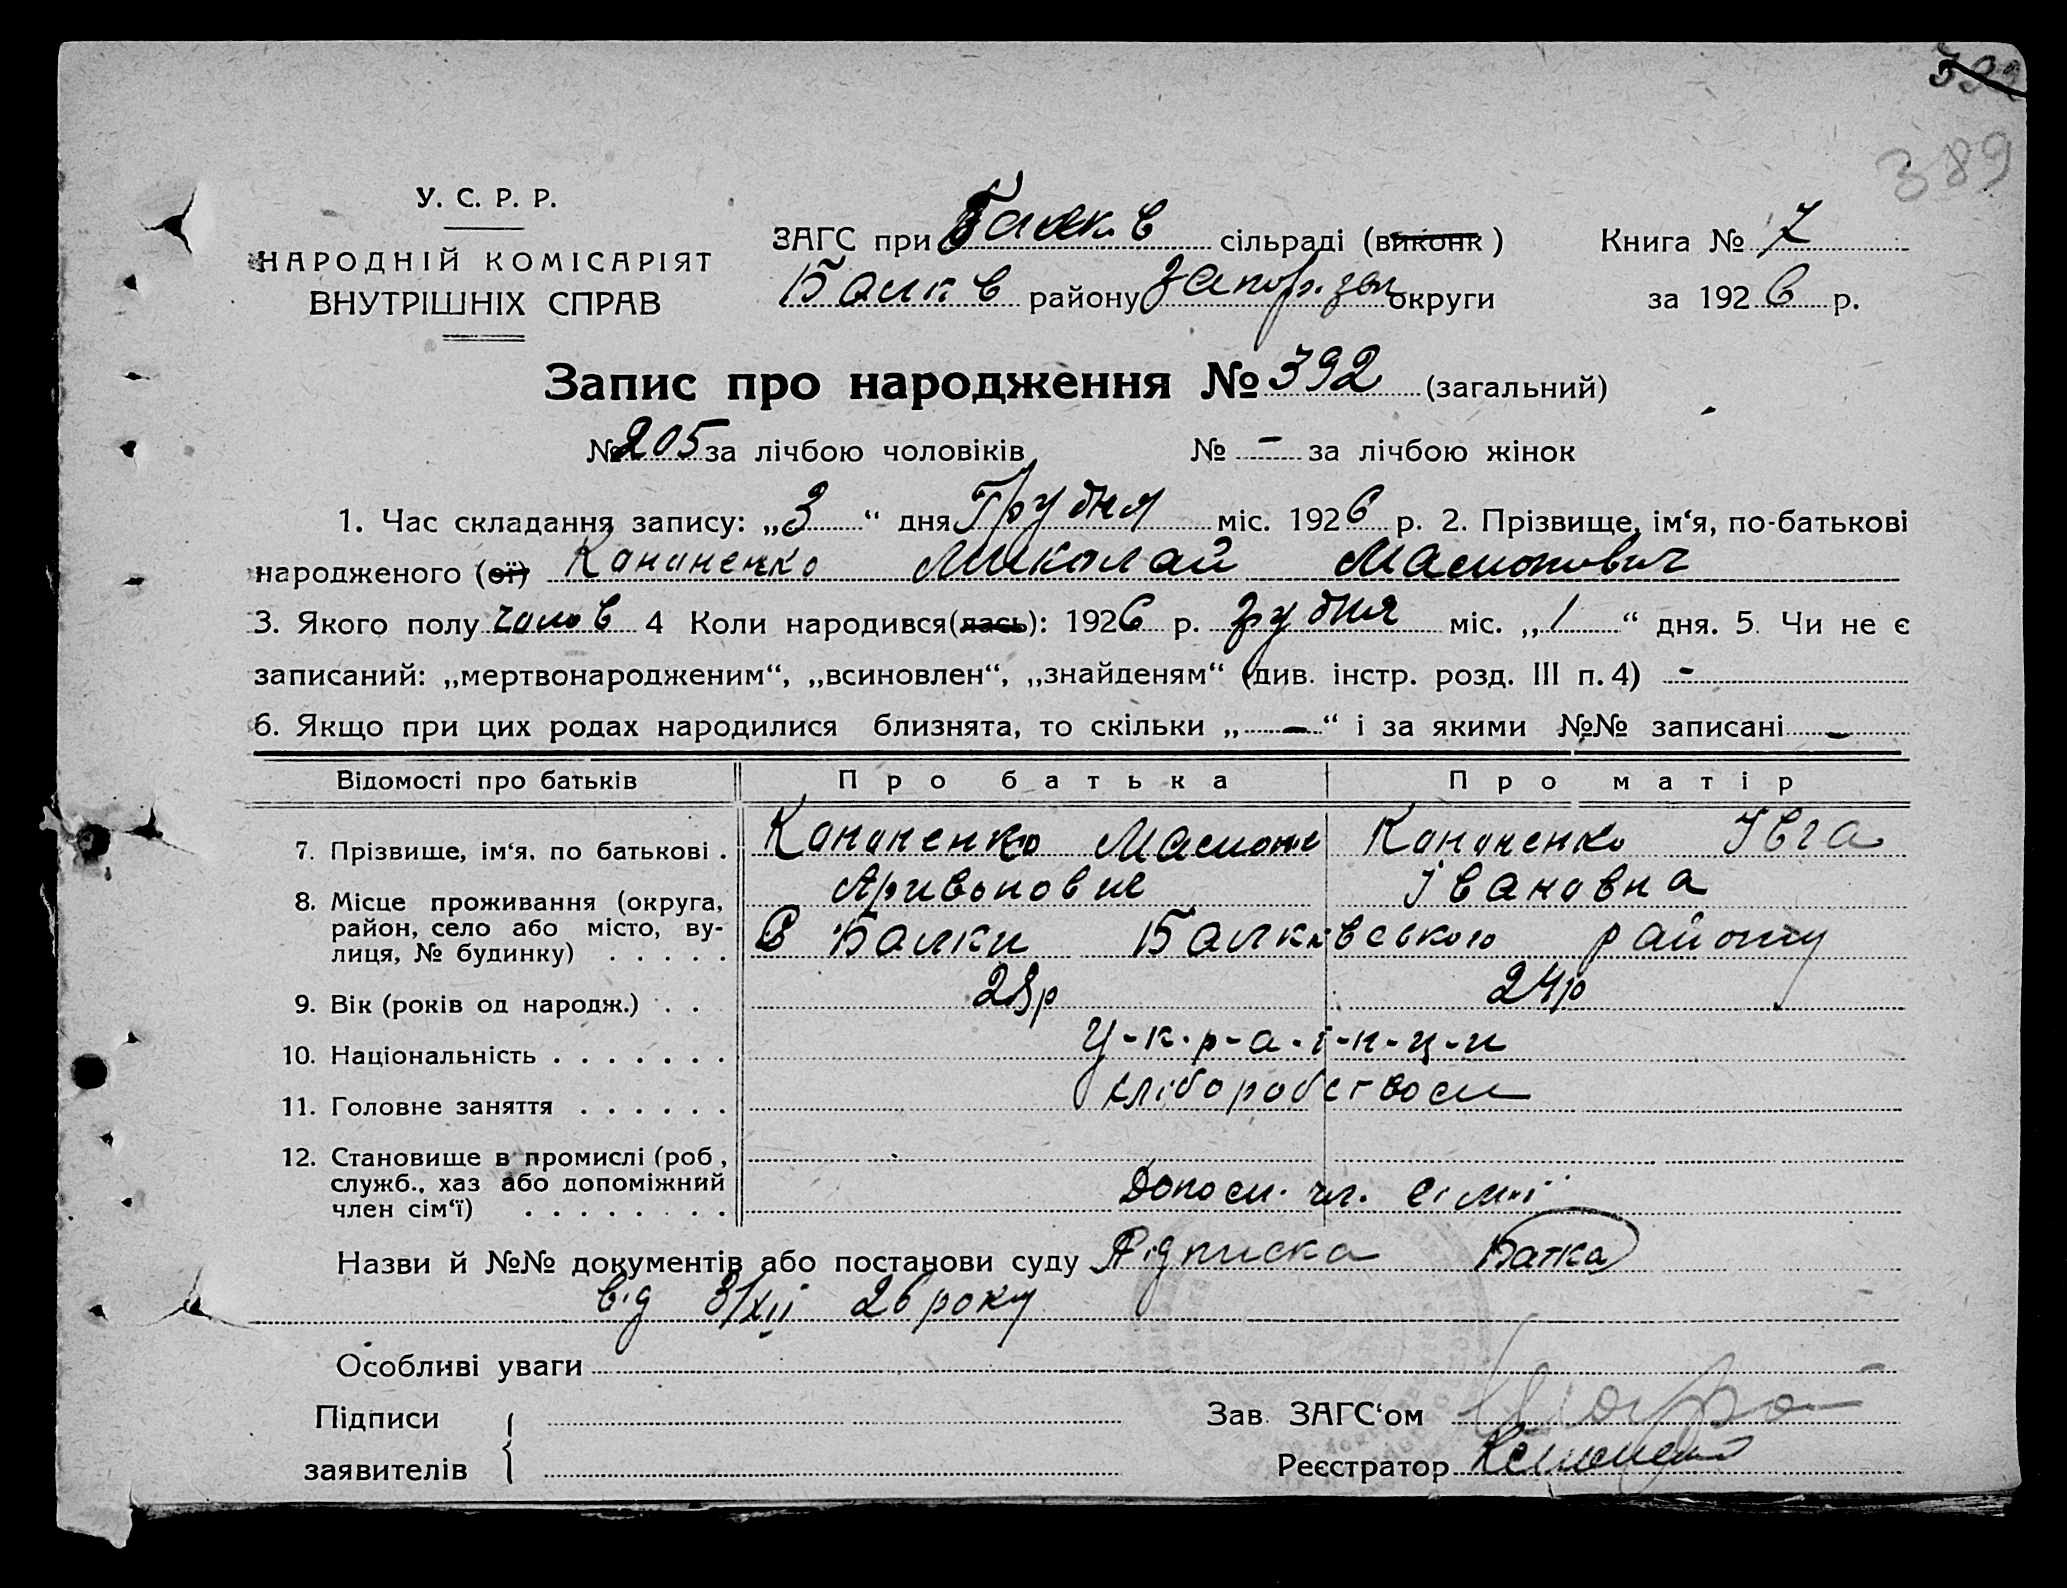 392
389
У. С. Р. Р.
НАРОДНІЙ КОМІСАРІЯТ
ВНУТРІШНІХ СПРАВ
ЗАГС при Балків сільраді (виконк)
Балків району Запоріз округи
Книга № 7
за 1926 р.
Запис про народження № 392 (загальний)
№ 205 за лічбою чоловіків № - за лічбою жінок
1. Час складання запису: „3“ дня Грудня міс. 1926 р. 2. Прізвище, ім‘я, по-батькові
народженого (ої) Кононенко Миколай
3. Якого полу чолов 4 Коли народився(лась): 1926 р. грудня міс. „1“ дня. 5. Чи не є
записаний: „мертвонародженим“, „всиновлен“, „знайденям“ (див. інстр. розд. III п. 4) -
6. Якщо при цих родах народилися близнята, то скільки „-“ і за якими №№ записані -
Відомості про батьків Про батька Про матір
7. Прізвище, ім‘я, по батькові . Кононенко Кононенко Івга
Івановна
8. Місце проживання (округа,
район, село або місто, ву-
лиця, № будинку) . . . . . С Балки Балківського району
9. Вік (років од народж.) . . 28р 24р
10. Національність . . . . . . . У-к-р-а-ї-н-ц-и
11. Головне заняття . . . . . . хліборобством
12. Становище в промислі (роб.,
служб., хаз або допоміжний
член сім‘ї) . . . . . . . . Допом. чл. сімї
Назви й №№ документів або постанови суду Підписка Батка
від 3/XII 26 року
Особливі уваги -
Підписи
заявителів
Зав. ЗАГС‘ом
Реєстратор